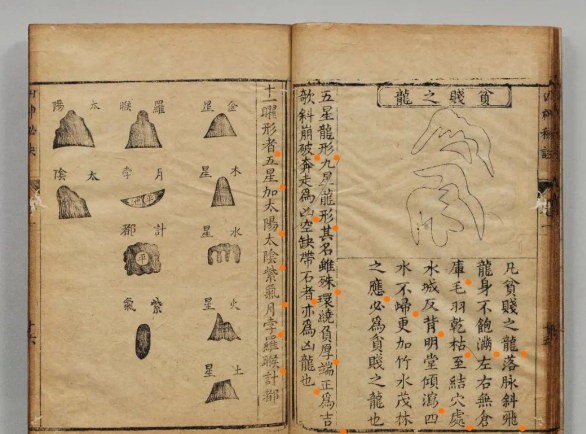 貧賤之龍
凡貧賤之龍落脉斜飛
龍身不飽滿左右無倉
庫毛羽乾枯至結穴處
水城反背明堂傾瀉四
水不歸更加竹水茂林
之應必為貧賤之龍也
五星龍形九星龍形其名雖殊環繞負厚端正為吉
欹斜崩破奔走為凶空缺帶石者亦為凶龍也
十一曜形者五星加太陽太陰紫氣月孛羅睺計都
金星
木星
水星
火星
土星
羅睺
月孛
計都
平
紫氣
太陽
太陰